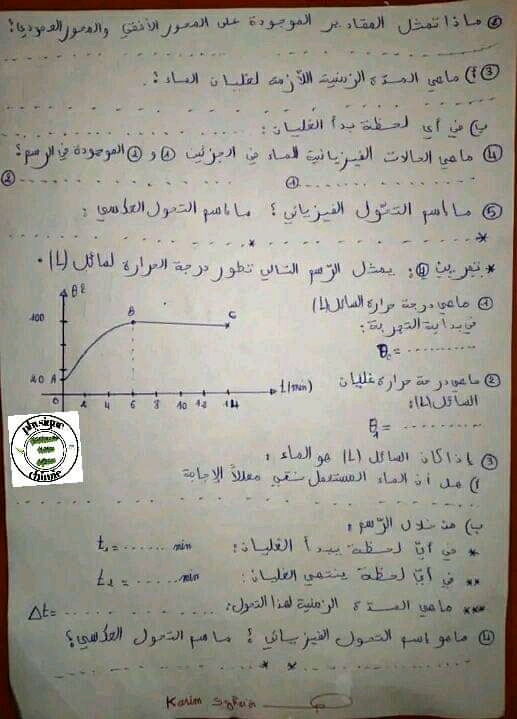 ② ماذا تمثل المقادير الموجودة على المحور الأفقي والمحور العمودي؟
③ أ) ماهي المدة الزمنية اللازمة لغليان الماء؟
ب) في أي لحظة بدأ الغليان:
④ ماهي الحالات الفيزيائية للماء في الجزئين ① و ② الموجودة في الرسم؟
① ②
⑤ ما اسم التحول الفيزيائي؟ ما اسم التحول العكسي:
* *
* تمرين 4: يمثل الرسم التالي تطور درجة الحرارة لسائل (L).
① ماهي درجة حرارة السائل (L)
في بداية التجربة:
θ₀ = ..........
② ماهي درجة حرارة غليان
السائل (L):
θ₁ = ..........
θ
100
20
A
B
C
0 2 4 6 8 10 12 14
t(min)
physique
chimie
③ إذا كان السائل (L) هو الماء:
أ) هل أن الماء المستعمل نقي معللا الإجابة
ب) من خلال الرسم:
* في أي لحظة يبدأ الغليان: t₁ = ...... min
** في أي لحظة ينتهي الغليان: t₂ = ...... min
*** ماهي المدة الزمنية لهذا التحول: Δt = ..........
④ ماهو اسم التحول الفيزيائي؟ ما اسم التحول العكسي؟
* *
Karim